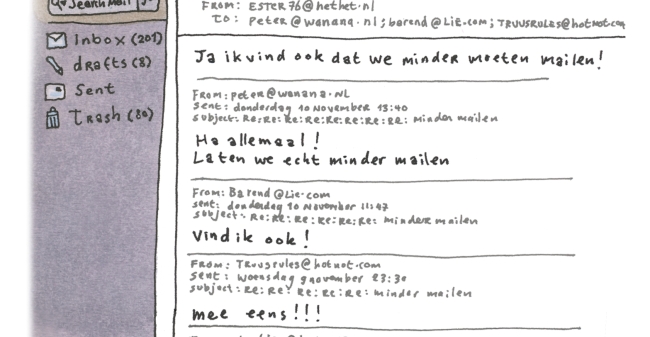 Search Mail
Inbox (201)
drafts (8)
Sent
Trash (80)
From: ESTER76@hethet.nl
To: Peter@wanana.nl; barend@Lie.com; TRUUSRULES@hotnot.com
Ja ik vind ook dat we minder moeten mailen!
From: peter@wanana.NL
Sent: donderdag 10 November 13:40
Subject: Re:Re:Re:Re:Re:Re:Re: Minder mailen
Ha allemaal!
Laten we echt minder mailen
From: Barend@Lie.com
Sent: donderdag 10 November 11:47
subject: Re:Re:Re:Re:Re:Re: minder mailen
Vind ik ook!
From: Truusrules@hotnot.com
Sent: woensdag 9 november 23:30
subject: Re:Re:Re:Re:Re: minder mailen
mee eens!!!